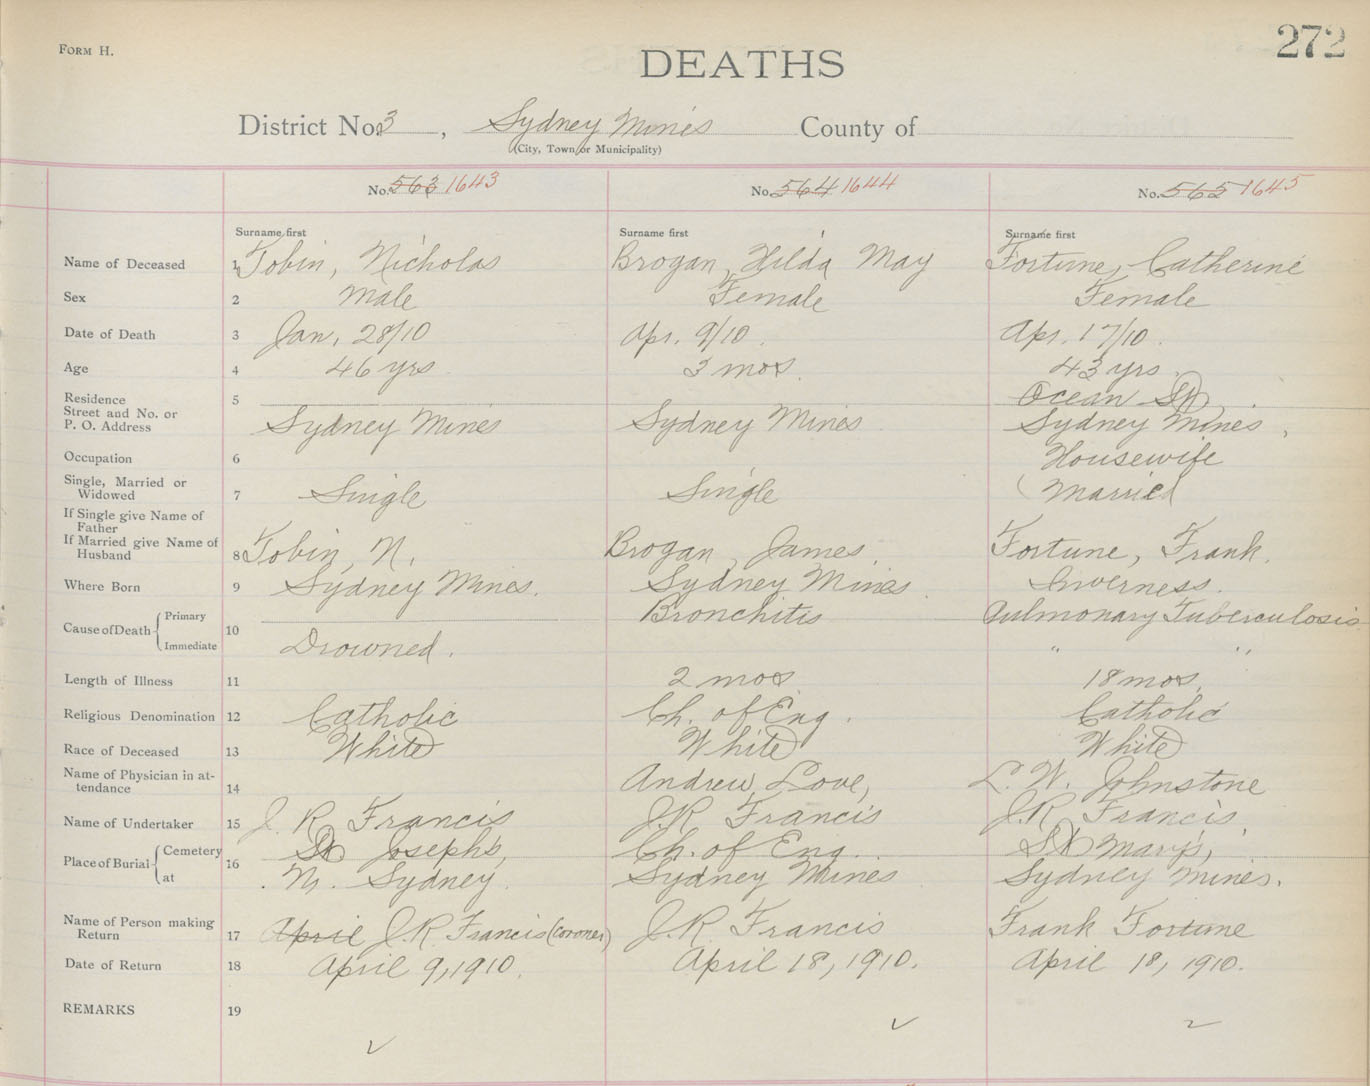 FORM H.
272
DEATHS
District No. 3, Sydney Mines County of
(City, Town or Municipality)
No. 563 1643 No. 564 1644 No. 565 1645
Surname first Surname first Surname first
Name of Deceased 1 Tobin, Nicholas Brogan, Hilda May Fortune, Catherine
Sex 2 Male Female Female
Date of Death 3 Jan, 28/10 Apr. 9/10. Apr. 17/10.
Age 4 46 yrs 3 mos. 43 yrs.
Residence 5 Ocean St,
Street and No. or
P. O. Address Sydney Mines Sydney Mines Sydney Mines,
Occupation 6 Housewife
Single, Married or
Widowed 7 Single Single Married
If Single give Name of
Father
If Married give Name of
Husband 8 Tobin, N. Brogan, James, Fortune, Frank.
Where Born 9 Sydney Mines. Sydney Mines. Inverness.
Cause of Death Primary 10 Bronchitis Pulmonary Tuberculosis
Immediate Drowned. " "
Length of Illness 11 2 mos. 18 mos.
Religious Denomination 12 Catholic Ch. of Eng. Catholic
Race of Deceased 13 White White White
Name of Physician in at-
tendance 14 Andrew Love, L. W. Johnstone
Name of Undertaker 15 J. R. Francis J.R. Francis J.R. Francis,
Place of Burial Cemetery 16 St Joseph's, Ch. of Eng. St Mary's,
at N. Sydney. Sydney Mines Sydney Mines.
Name of Person making
Return 17 April J.R. Francis (Coroner) J.R. Francis Frank Fortune
Date of Return 18 April 9, 1910. April 18, 1910. April 18, 1910.
REMARKS 19